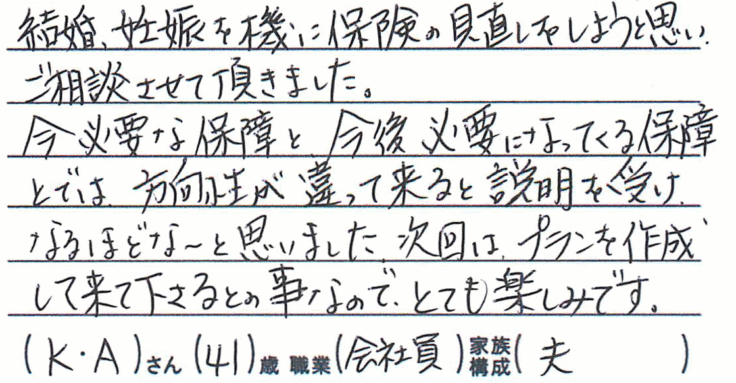 結婚、妊娠を機に保険の見直しをしようと思い、
ご相談させて頂きました。
今必要な保障と、今後必要になってくる保障
とでは、方向性が違って来ると説明を受け、
なるほどな〜と思いました。次回は、プランを作成
して来て下さるとの事なので、とても楽しみです。
(K・A)さん(41)歳 職業(会社員)家族構成(夫 )